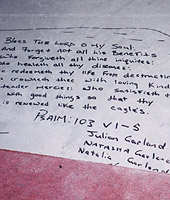 Bless The Lord O My Soul:
And Forget not all his Benefits
Who Forgiveth all thine iniquites:
healeth all thy diseases:
redeemeth thy life From destruction
crowneth with loving kind
tender Mercies: Who Satisfieth t
with good things so that thy
is renewed like the eagles.
PSALM: 103 V 1-5
Julian Garland
NATASHA Garland
Natalia Garland